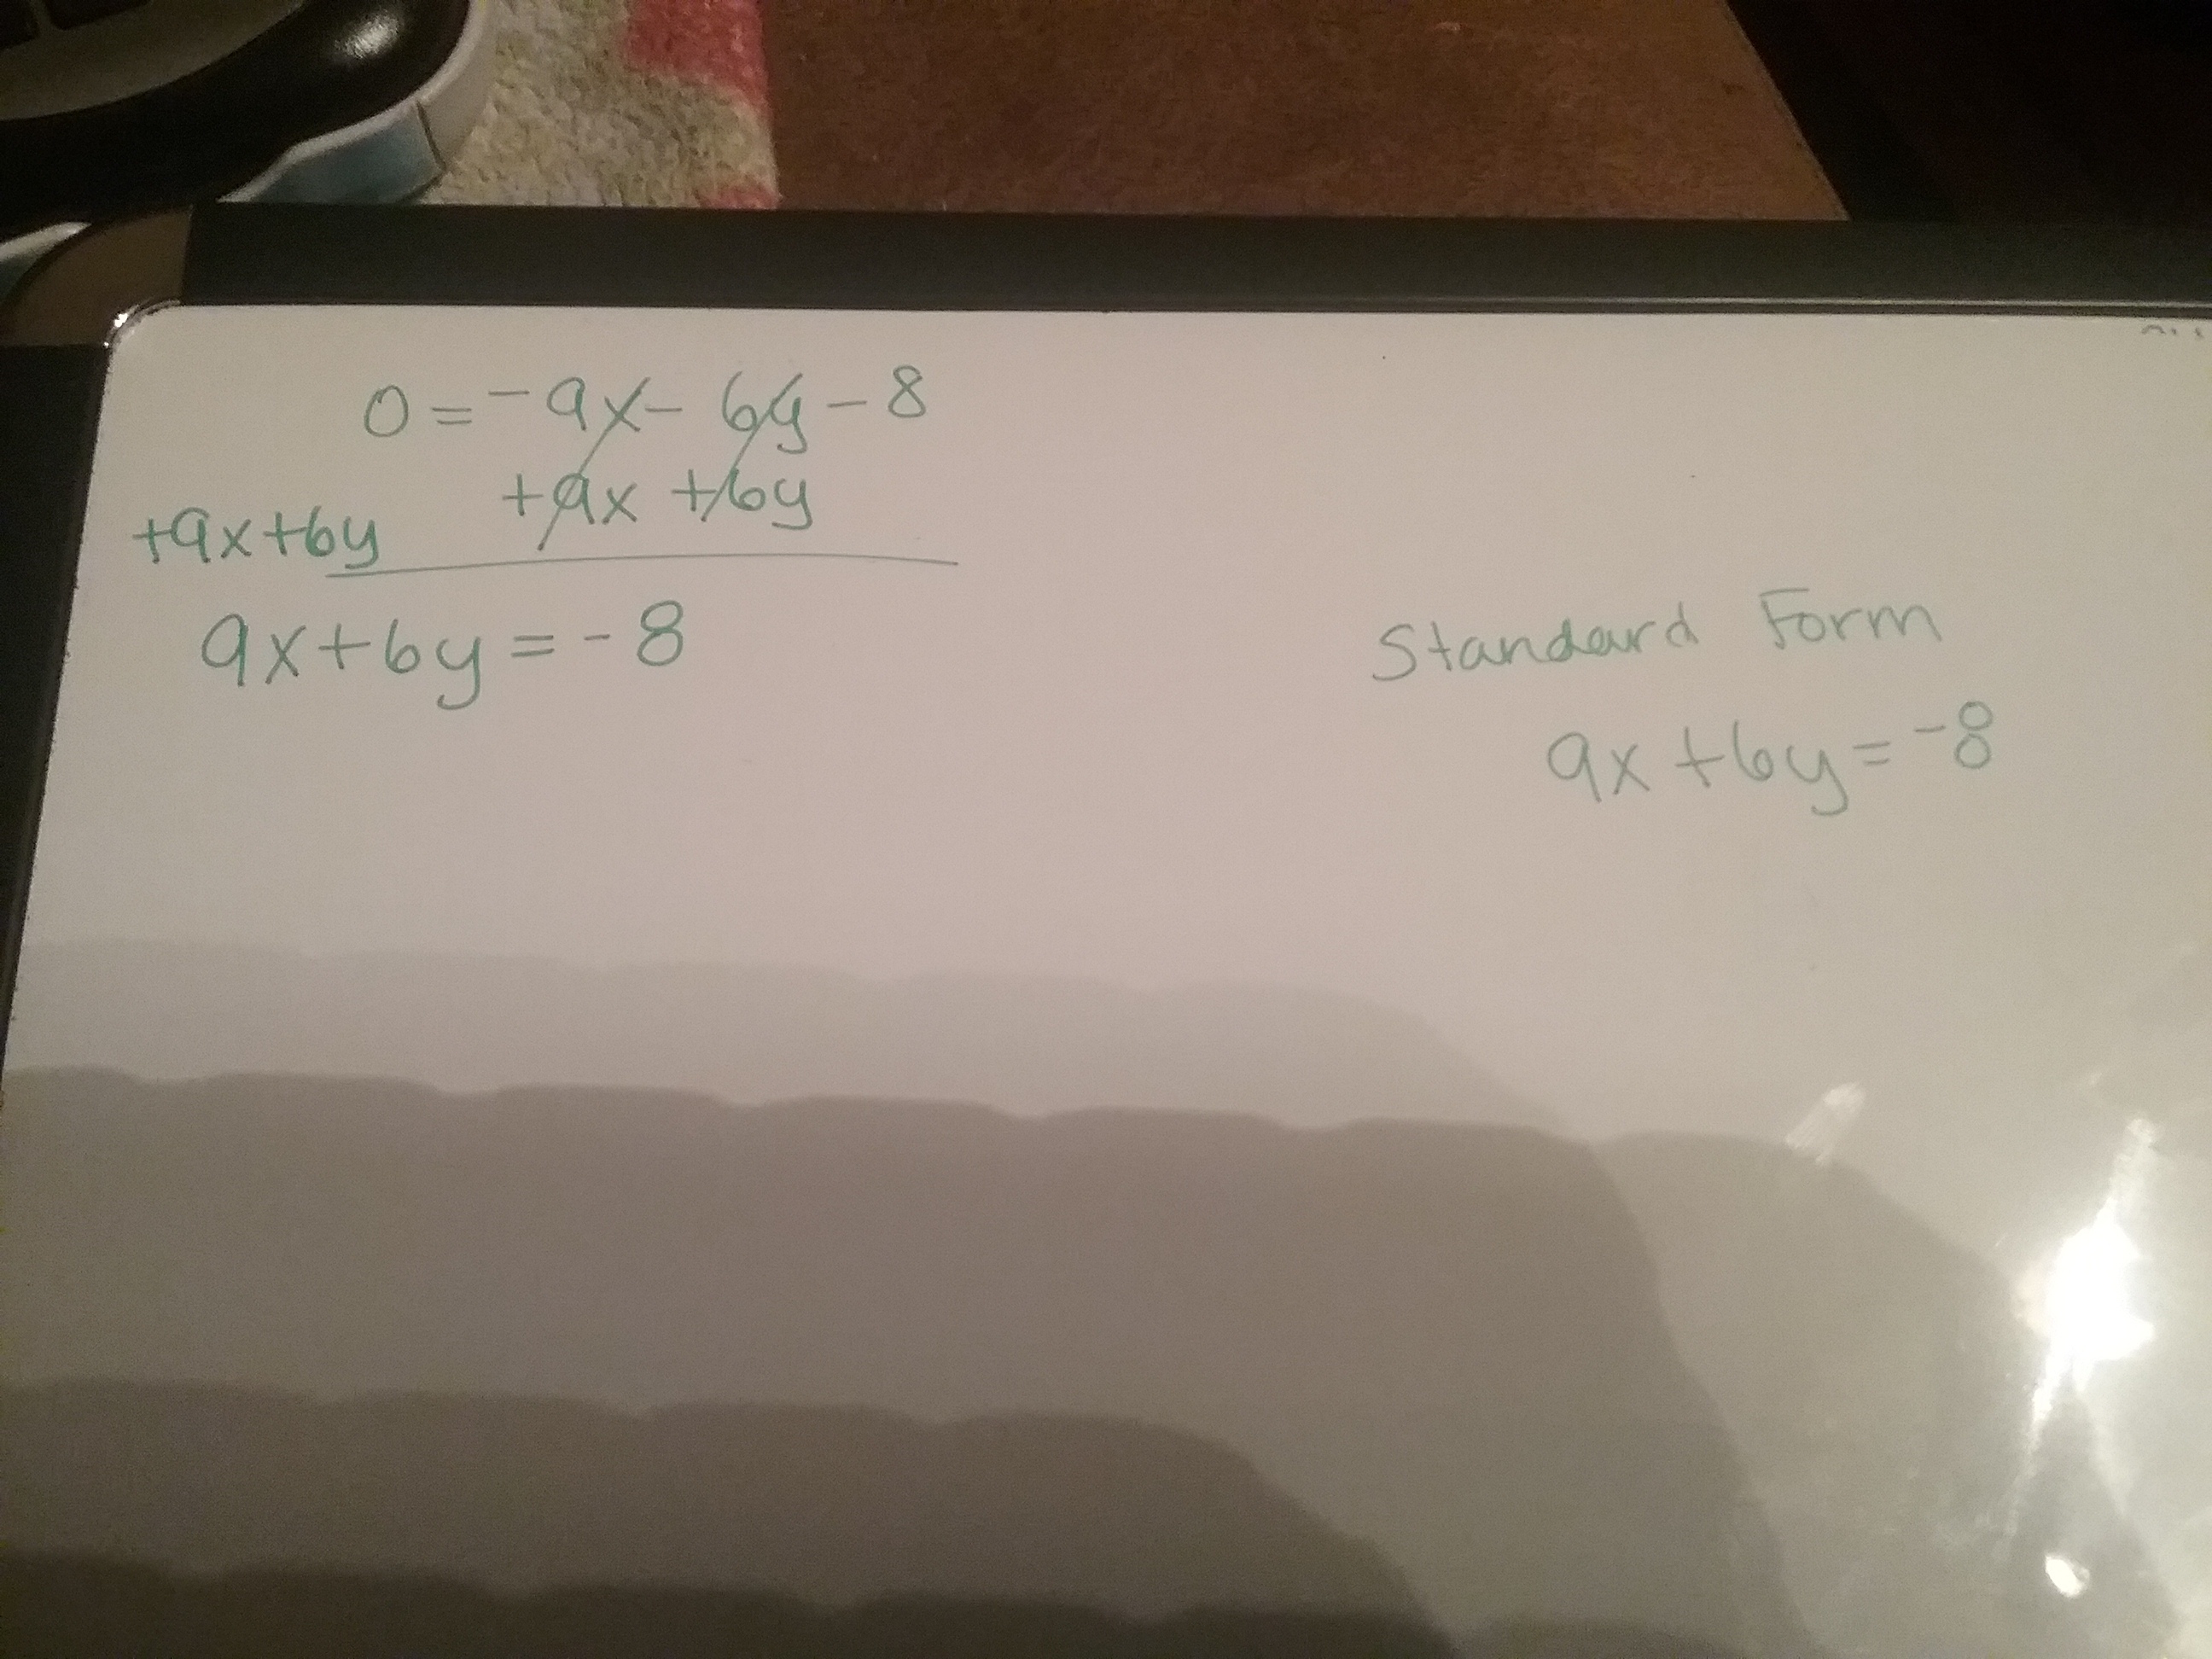 0 = -9x - 6y - 8
+9x +6y
+9x+6y
9x+6y = -8
Standard Form
9x +6y = -8